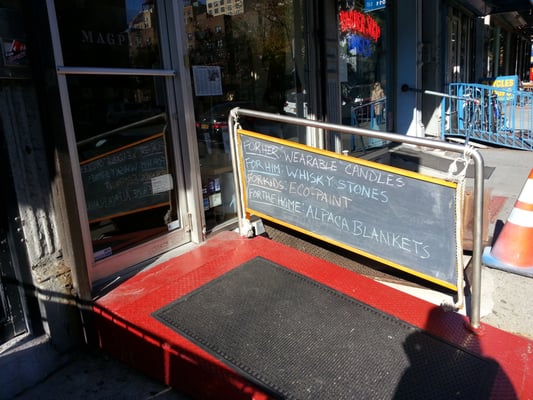 MAGPIE
FOR HER: WEARABLE CANDLES
FOR HIM: WHISKY STONES
FOR KIDS: ECO-PAINT
FOR THE HOME: ALPACA BLANKETS